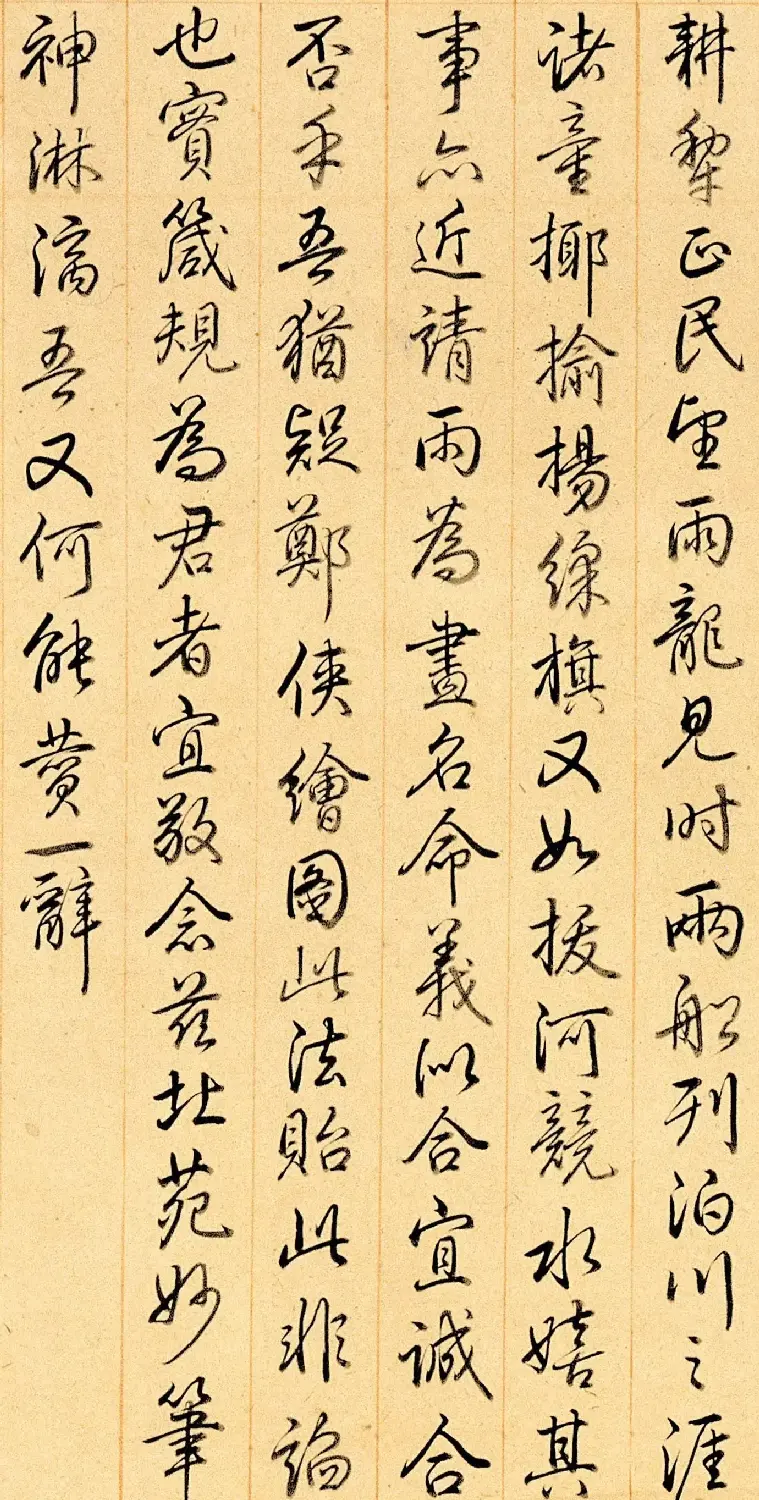 耕犁正民望雨龍見时兩船列泊川之涯
諸童揶揄揚綵旗又如拔河競水嬉其
事亦近請雨為畫名命義似合宜誠合
否乎吾猶疑鄭俠繪圖此法貽此非諂
也實箴規為君者宜敬念茲北苑妙筆
神淋漓吾又何能贊一辭